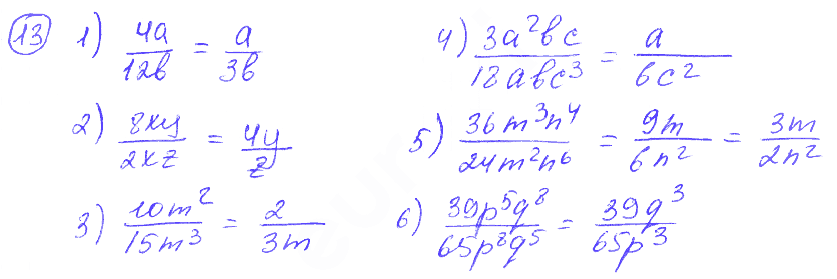 13 1) 4a/12b = a/3b
2) 8xy/2xz = 4y/z
3) 10m²/15m³ = 2/3m
4) 3a²bc/18abc³ = a/6c²
5) 36m³n⁴/24m²n⁶ = 9m/6n² = 3m/2n²
6) 39p⁵q⁸/65p⁸q⁵ = 39q³/65p³